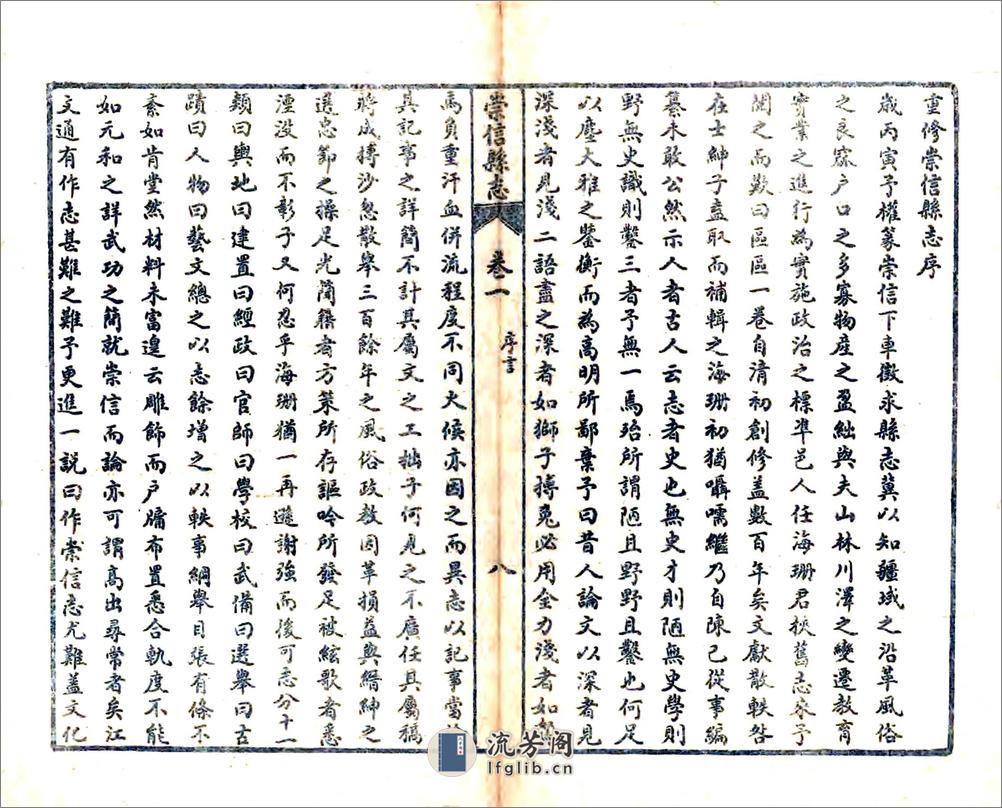 重修崇信縣志序
歲丙寅予權篆崇信下車徵求縣志冀以知疆域之沿革風俗
之良窳户口之多寡物產之盈絀與夫山林川澤之變遷教育
實業之進行為實施政治之標準邑人任海珊君挾舊志來予
閱之而歎曰區區一卷自清初創修盖數百年矣文獻散軼咎
在士紳子盍取而補輯之海珊初猶囁嚅繼乃自陳已從事編
纂未敢公然示人者古人云志者史也無史才則陋無史學則
野無史識則鑿三者予無一焉殆所謂陋且野野且鑿也何足
以塵大雅之鑒衡而為高明所鄙棄予曰昔人論文以深者見
深淺者見淺二語盡之深者如獅子搏兔必用全力淺者如
崇信縣志
卷一
序言
八
馬負重汗血併流程度不同火候亦因之而異志以記事當
具記事之詳簡不計其屬文之工拙子何見之不廣任其屬稿
將成搏沙忽散舉三百餘年之風俗政教因革損益與縉紳之
選忠節之操足光簡籍者方策所存謳吟所發足被絃歌者悉
湮没而不彰子又何忍乎海珊猶一再遜謝強而後可志分十一
類曰輿地曰建置曰經政曰官師曰學校曰武備曰選舉曰古
蹟曰人物曰藝文總之以志餘增之以軼事綱舉目張有條不
紊如肯堂然材料未富遑云雕飾而户牖布置悉合軌度不能
如元和之詳武功之簡就崇信而論亦可謂高出尋常者矣江
文通有作志甚難之難予更進一説曰作崇信志尤難盖文化
流芳阁
lfglib.cn